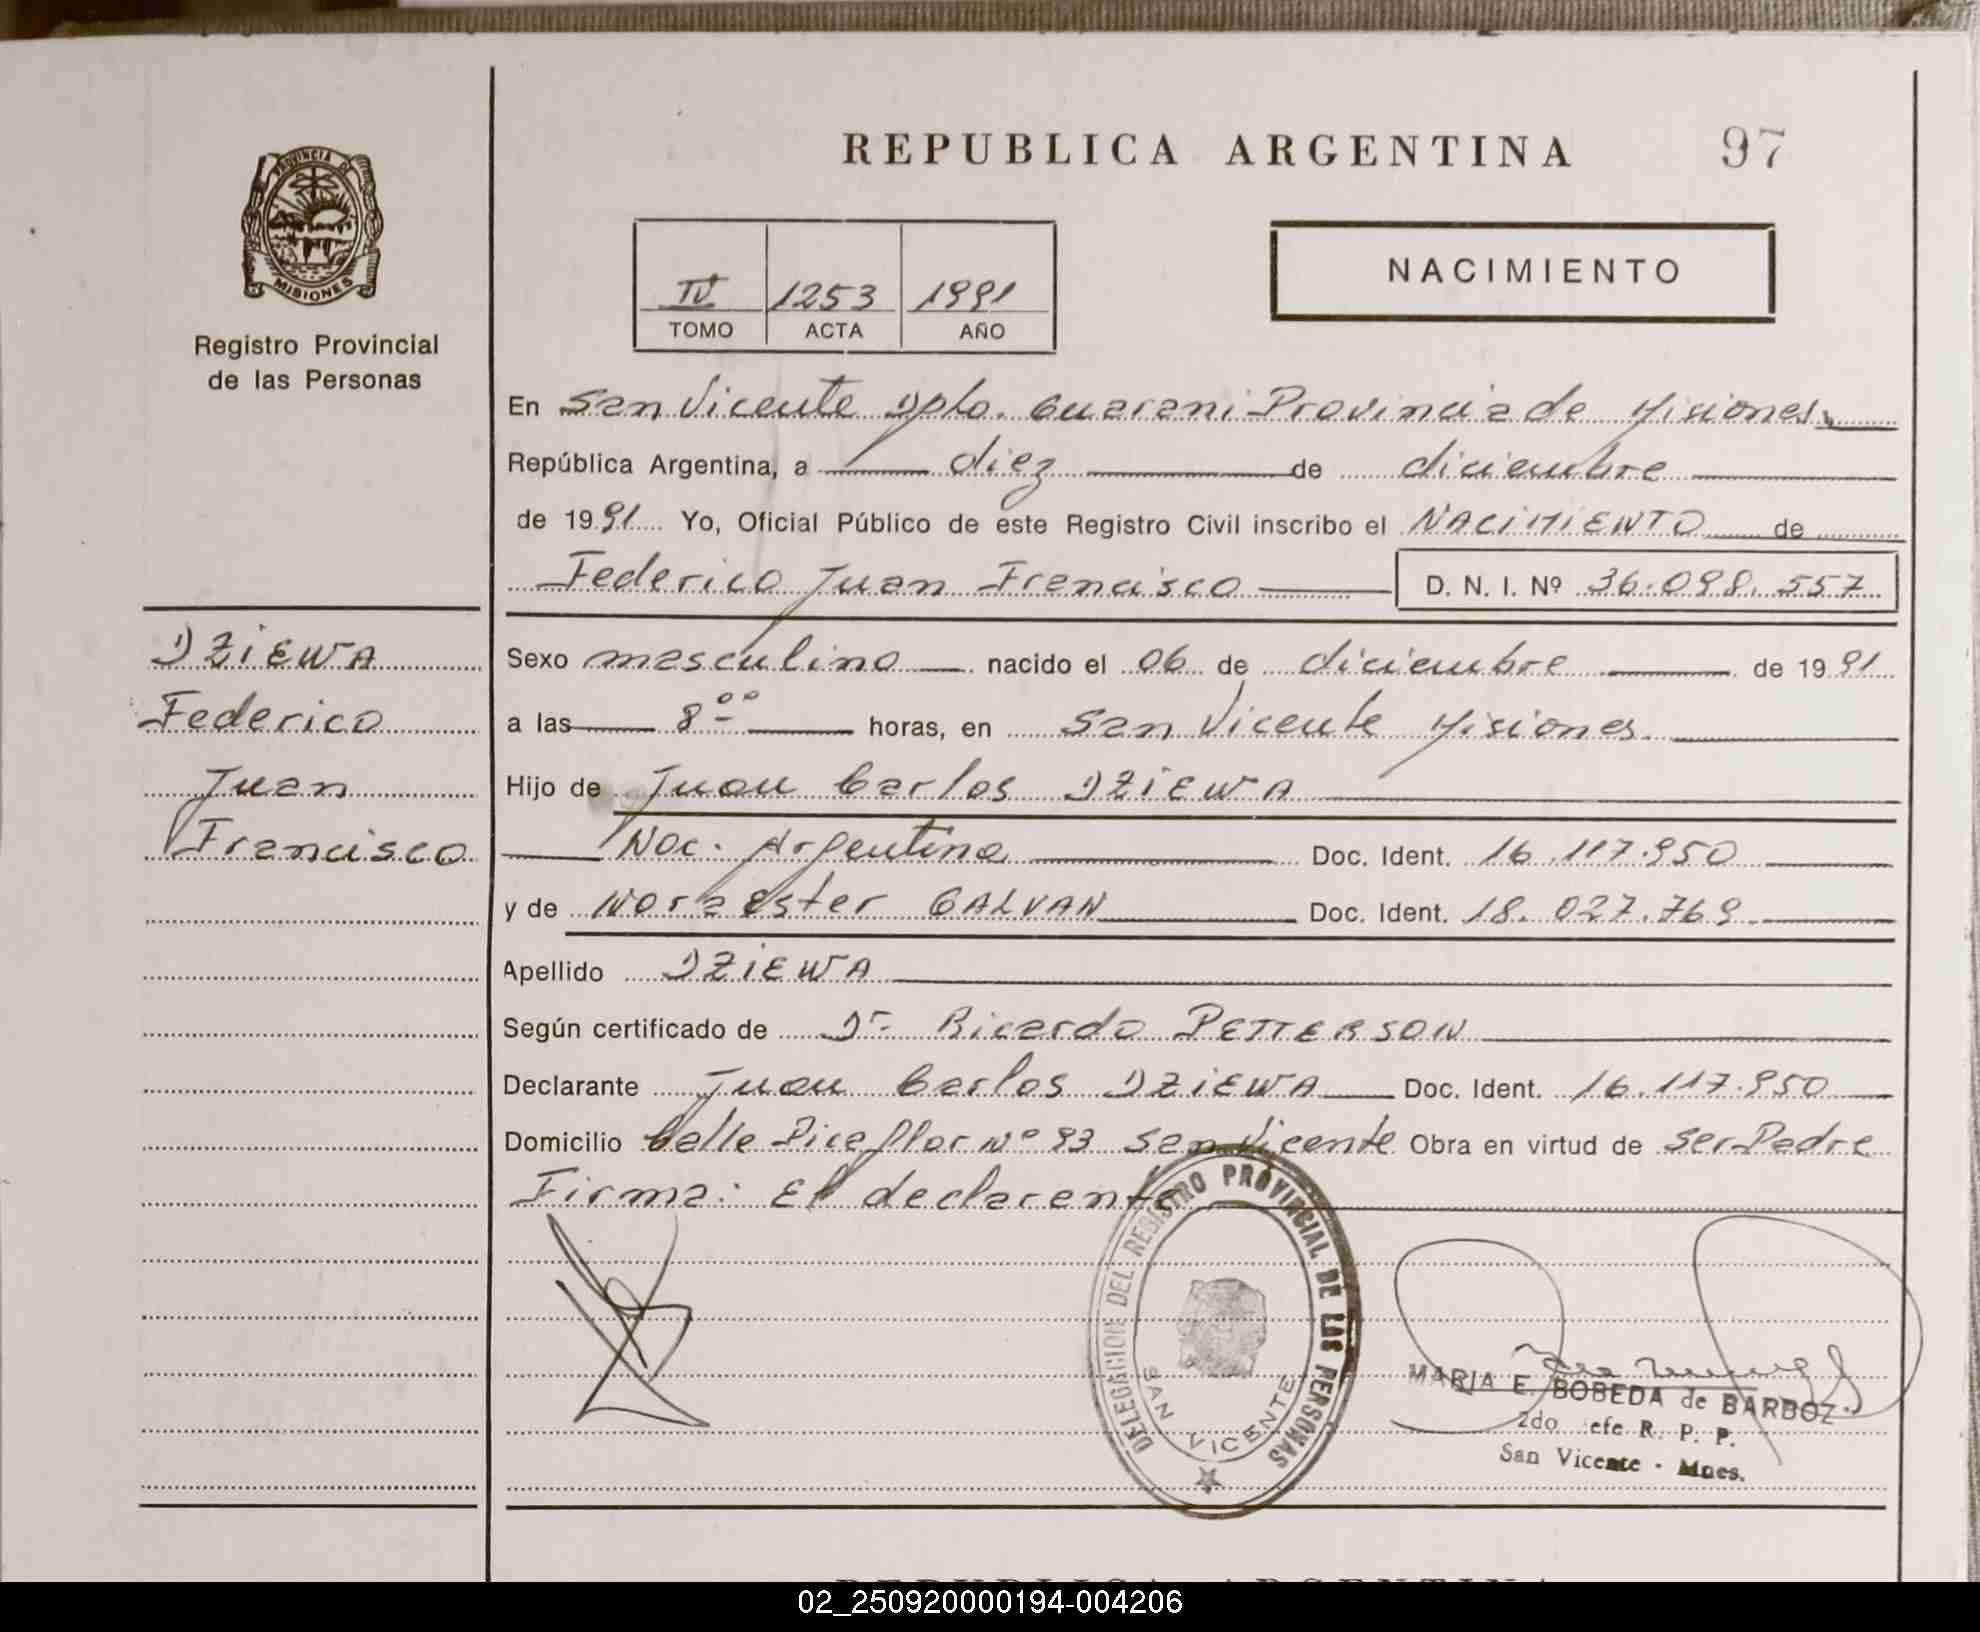 REPUBLICA ARGENTINA 97
PROVINCIA DE MISIONES
Registro Provincial
de las Personas
NACIMIENTO
IV 1253 1991
TOMO ACTA AÑO
En San Vicente Dpto. Guarani Provincia de Misiones.
República Argentina, a diez de diciembre
de 1991 Yo, Oficial Público de este Registro Civil inscribo el NACIMIENTO de
Federico Juan Francisco D. N. I. Nº 36.098.557
DZIEWA
Federico
Juan
Francisco
Sexo masculino nacido el 06 de diciembre de 1991
a las 8 00 horas, en San Vicente Misiones.
Hijo de Juan Carlos DZIEWA
Nac. Argentina Doc. Ident. 16.117.950
y de Nora Ester GALVAN Doc. Ident. 18.027.769
Apellido DZIEWA
Según certificado de Dr. Ricardo PETTERSON
Declarante Juan Carlos DZIEWA Doc. Ident. 16.117.950
Domicilio Calle Picaflor Nº 93 San Vicente Obra en virtud de ser Padre
Firma: El declarante
DELEGACION DEL REGISTRO PROVINCIAL DE LAS PERSONAS
SAN VICENTE
MARIA E. BOBEDA de BARBOZ
2do. efe R. P. P.
San Vicente - Mnes.
REPUBLICA ARGENTINA
02_250920000194-004206